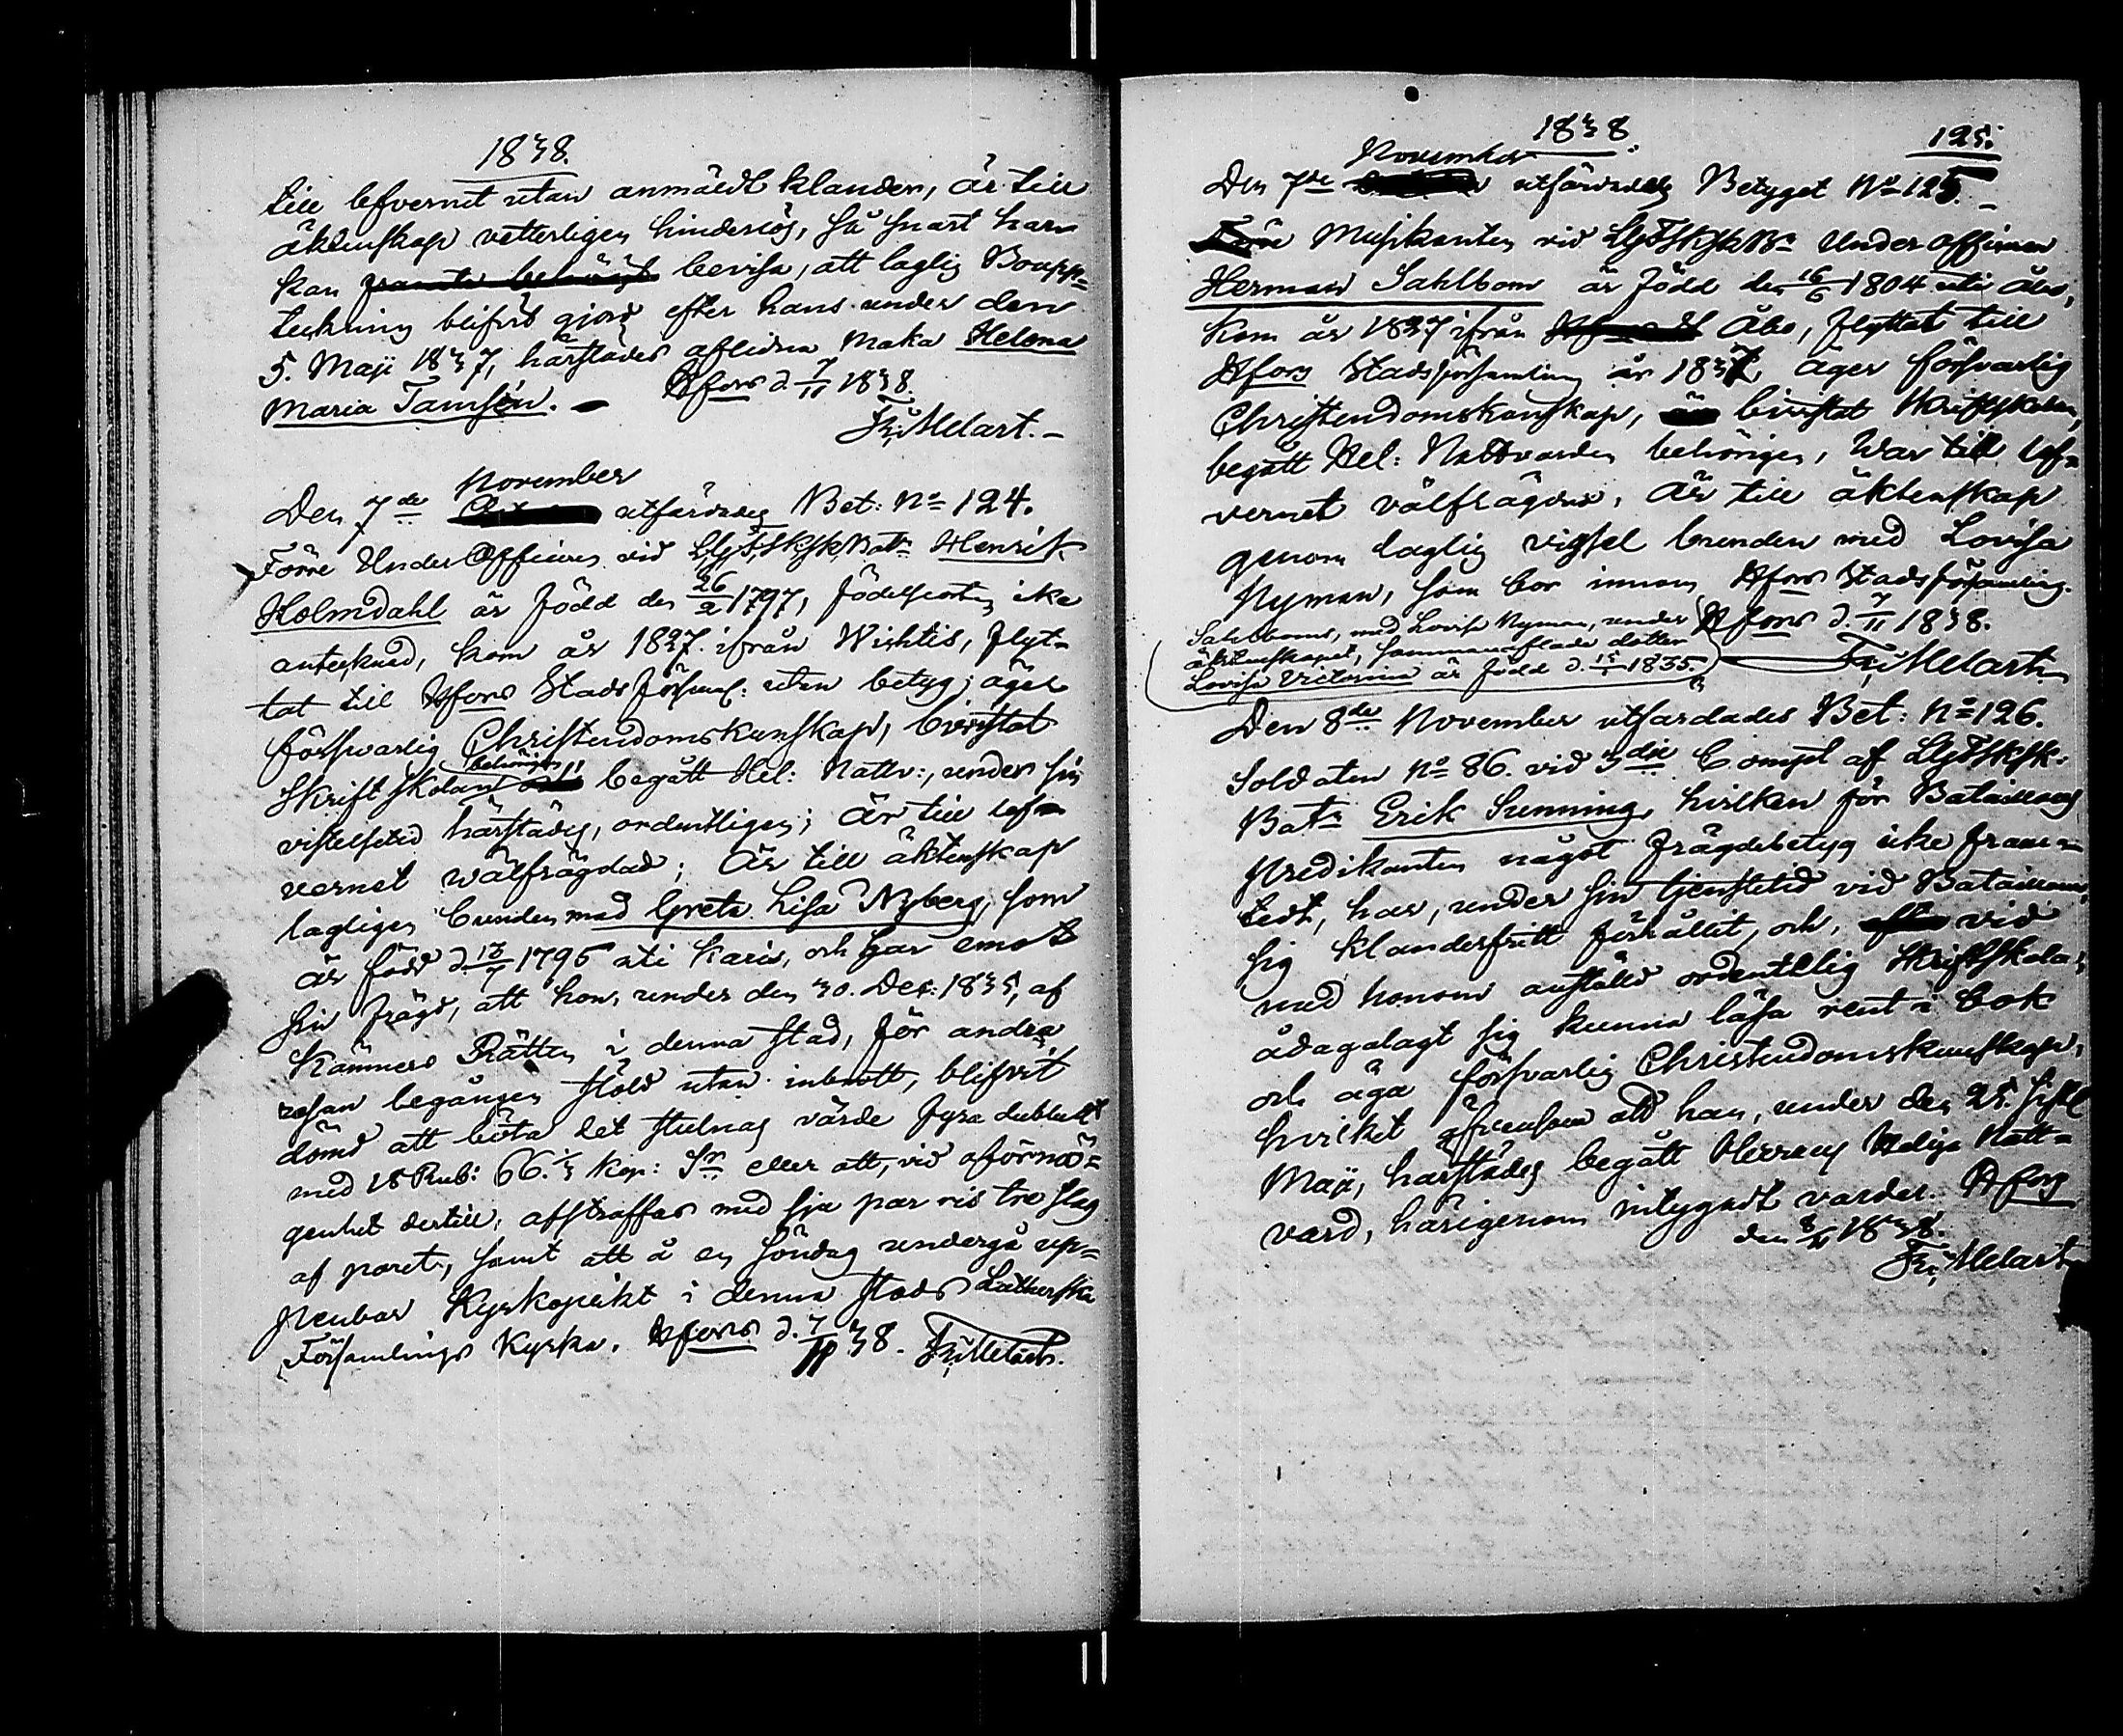 1838.
till lefvernet utan anmäldt klander, är till
äktenskap vetterligen hinderlös, så snart han
kan framte behörigt bevisa, att laglig Boupp-
teckning blifvit gjord efter hans under den
5. Maji 1837, härstädes aflidna maka Helena
Maria Tamsén. – Hfors d. 7/11 1838.
Fr. Melart. –
November
Den 7de utfärdades Bet: No 124.
Förre Under Officeren vid LGFSkSkBatn Henrik
Holmdahl är född den 26/2 1797, födelseorten icke
antecknad, kom år 1837 ifrån Wichtis, flyt-
tat till Hfors Stads Församl: utan betyg; äger
försvarlig Christendomskunskap, bivistat
behörigen
Skriftskolan begått Hel: Nattv:, under sin
vistelsetid härstädes, ordentligen; Är till lef-
vernet wälfrägdad; Är till äktenskap
lagligen bunden med Greta Lisa Nyberg, som
är född d 13/7 1795 uti Karis, och har emot
sin frägd, att hon, under den 30. Dec: 1835, af
Kämners Rätten i denna stad, för andra
resan begången stöld utan inbrott, blifvit
dömd att böta det stulnas värde fyra dubbelt
med 18 Rub: 66.2/3 Kop: Sr eller att, vid oförmö-
genhet dertill, afstraffas med sju par ris tre slag
af paret, samt att å en Söndag undergå up-
penbar Kyrkoplikt i denna stads Lutherska
Församlings Kyrka. Hfors d. 7/11 38. Fr. Melart.
1838. 125.
November
Den 7de utfärdades Betyget No 125. –
Förre Musikanten vid LGFSkSkBn Under officeren
Herman Sahlbom är född den 16/6 1804 uti Åbo,
kom år 1837 ifrån Åbo, flyttat till
Hfors Stadsförsamling år 1837, äger försvarlig
Christendomskunskap, bivistat Skriftskolan,
begått Hel: Nattvarden behörigen, War till lef-
vernet välfrägdad, Är till äktenskap
genom laglig vigsel bunden med Lovisa
Nyman, som bor innom Hfors Stads församling.
Hfors d. 7/11 1838.
Sahlboms, med Lovisa Nyman, under
äktenskapet, sammanaflade dotter
Lovisa Victorina är född d. 15/1 1835.
Fr. Melart.
Den 8de November utfärdades Bet: No 126.
Soldaten No 86. vid 3die Compt af LGFSkSk.
Batn Erik Sunning, hvilken för Bataillons
Predikanten något frägdebetyg icke fram-
tedt, har, under sin tjenstetid vid Bataillonen,
sig klanderfritt förhållit, och, vid
med honom anställd ordentlig Skriftskola,
ådagalagt sig kunna läsa rent i bok
och äga försvarlig Christendomskunskap,
hvilket äfvensom att han, under den 25. sistl
Maji, härstädes begått Herrans Heliga Natt-
vard, härigenom intygadt varder. Hfors
den 8/11 1838.
Fr. Melart